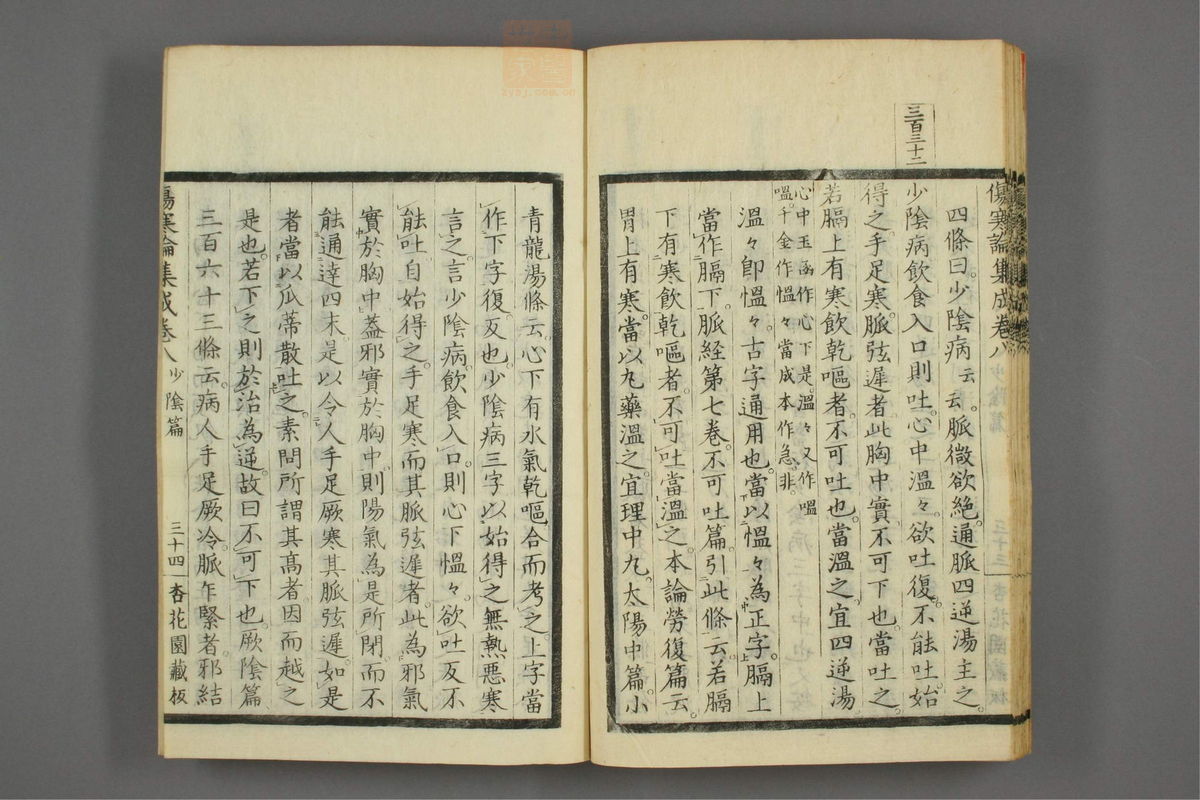 三百三十二
傷寒論集成卷八
四條曰。少陰病云云。脈微欲絕。通脈四逆湯主之。
少陰病飲食入口則吐。心中溫々。欲吐復不能吐。始
得之。手足寒。脈弦遲者此胸中實不可下也。當吐之
若膈上有寒飲乾嘔者。不可吐也。當溫之。宜四逆湯
心中玉函作心下是。溫々又作嗢
嗢。千金作愠々當成本作急。非。
溫々卽愠々。古字通用也。當以愠々為正字。膈上
當作膈下。脈経第七卷。不可吐篇。引此條云。若膈
下有寒飲乾嘔者。不可吐當溫之。本論勞復篇云。
胃上有寒。當以丸藥溫之。宜理中丸。太陽中篇。小
青龍湯條云。心下有水氣乾嘔。合而考之。上字當
作下字復反也。少陰病三字。以始得之無熱惡寒
言之。言少陰病。飲食入口則心下愠々。欲吐反不
能吐。自始得之。手足寒。而其脈弦遲者。此為邪氣
實於胸中。蓋邪實於胸中。則陽氣為是所閉。而不
能通達四末。是以令人手足厥寒其脈弦遲。如是
者當以瓜蒂散吐之。素問所謂其高者因而越之
是也。若下之則於治為逆。故曰不可下也。厥陰篇
三百六十三條云。病人手足厥冷脈乍緊者。邪結
傷寒論集成卷八 少陰篇 三十四 杏花園藏板
zysj.com.cn